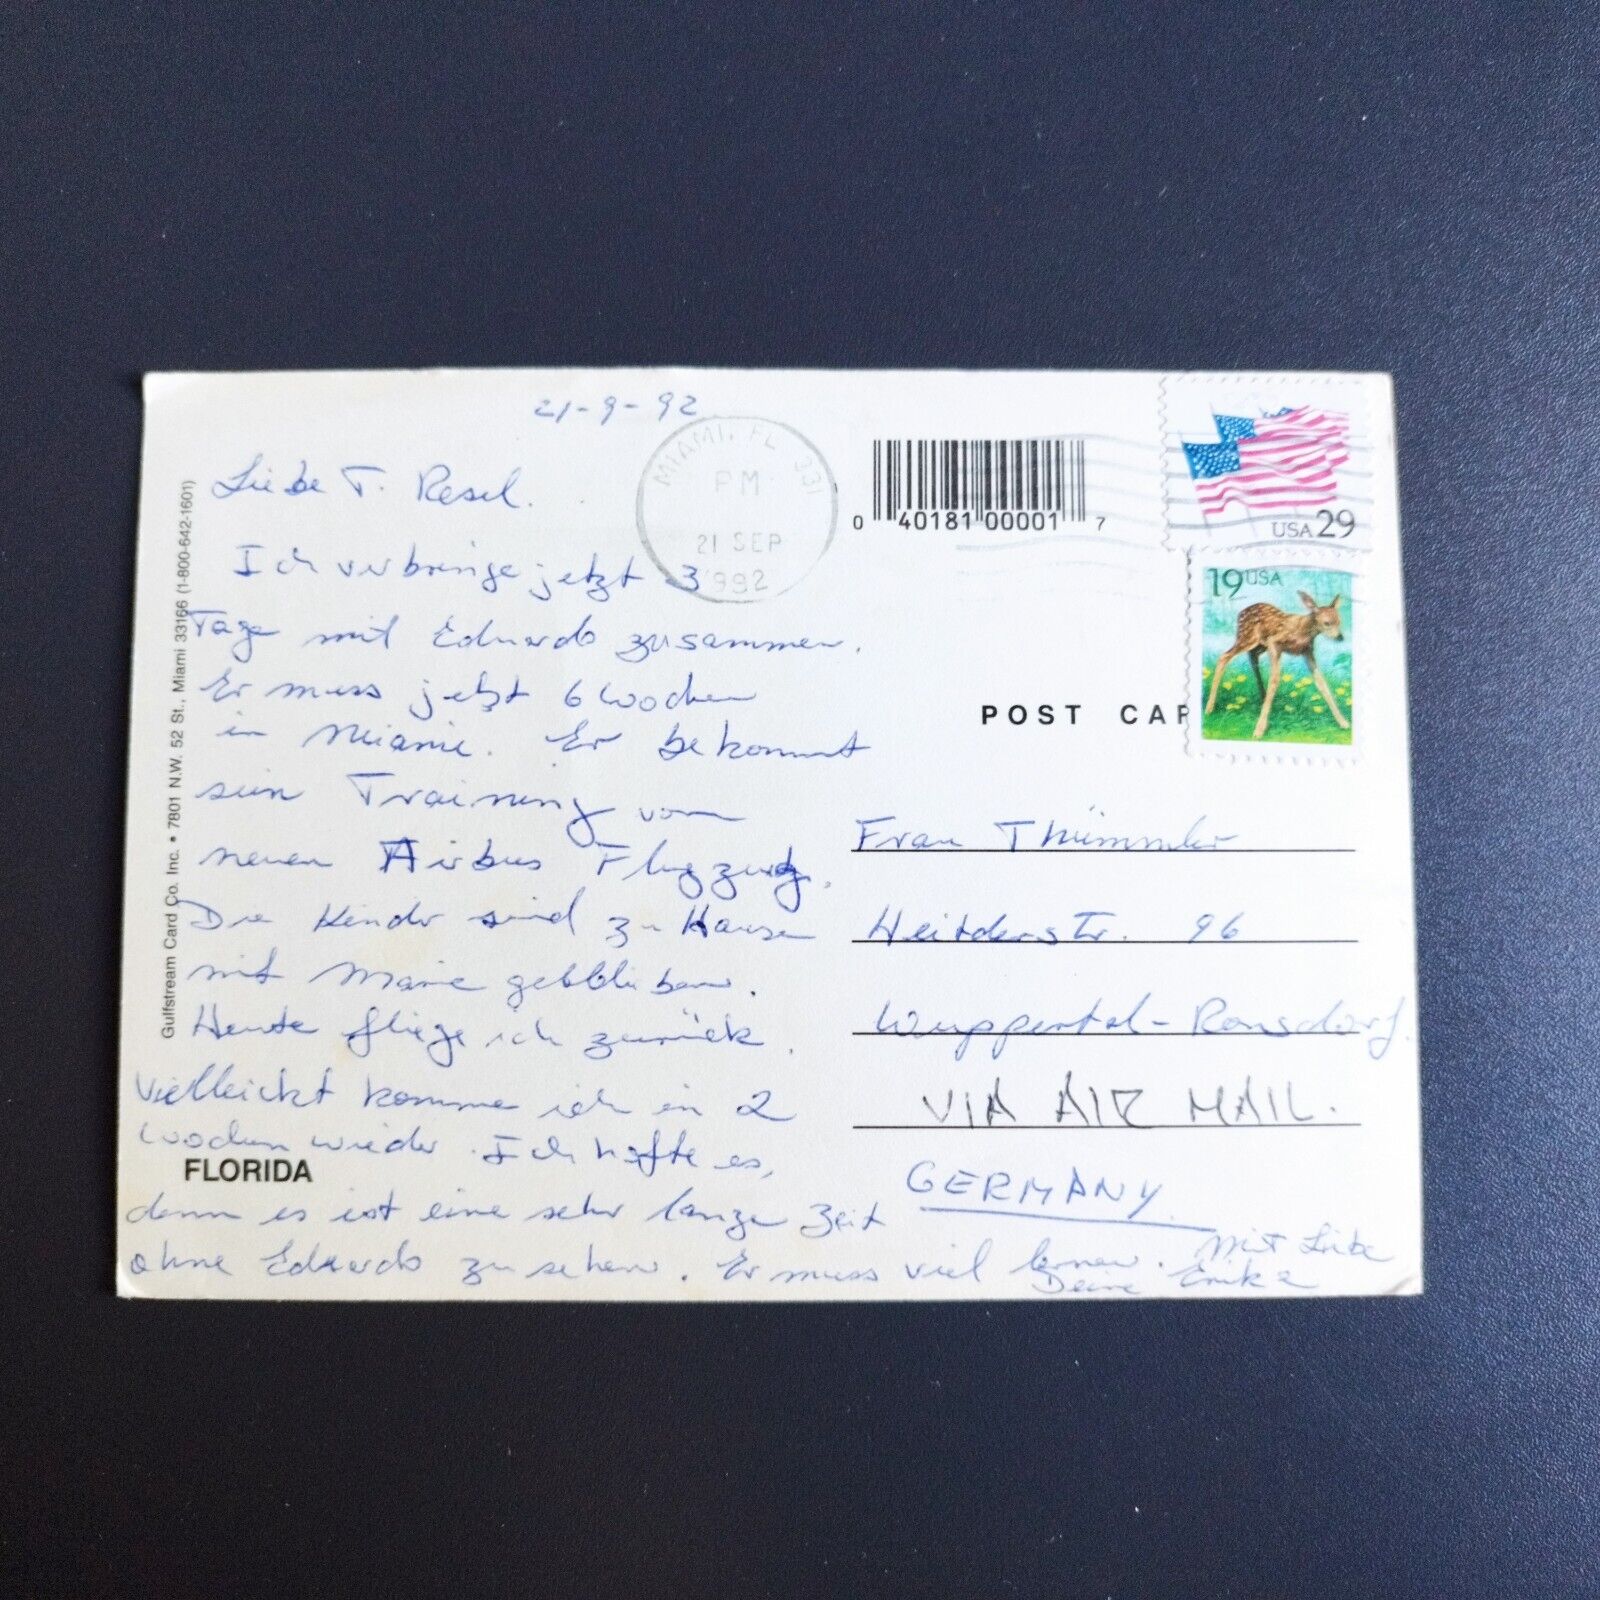 21-9-92
Liebe T. Resel.
Ich verbringe jetzt 3
Tage mit Eduardo zusammen.
Er muss jetzt 6 Wochen
in Miami. Er bekommt
sein Training vom
neuen Airbus Flugzeug.
Die Kinder sind zu Hause
mit Marie geblieben.
Heute fliege ich zurück.
Vielleicht komme ich in 2
Wochen wieder. Ich hoffe es,
denn es ist eine sehr lange Zeit
ohne Eduardo zu sehen. Er muss viel lernen. Mit Liebe
Deine Erika
FLORIDA
Gulfstream Card Co. Inc. • 7801 N.W. 52 St., Miami 33166 (1-800-642-1601)
MIAMI, FL 331
PM
21 SEP
1992
0 40181 00001 7
USA 29
19 USA
POST CAR
Frau Thümmler
Heidterstr. 96
Wuppertal-Ronsdorf.
VIA AIR MAIL.
GERMANY